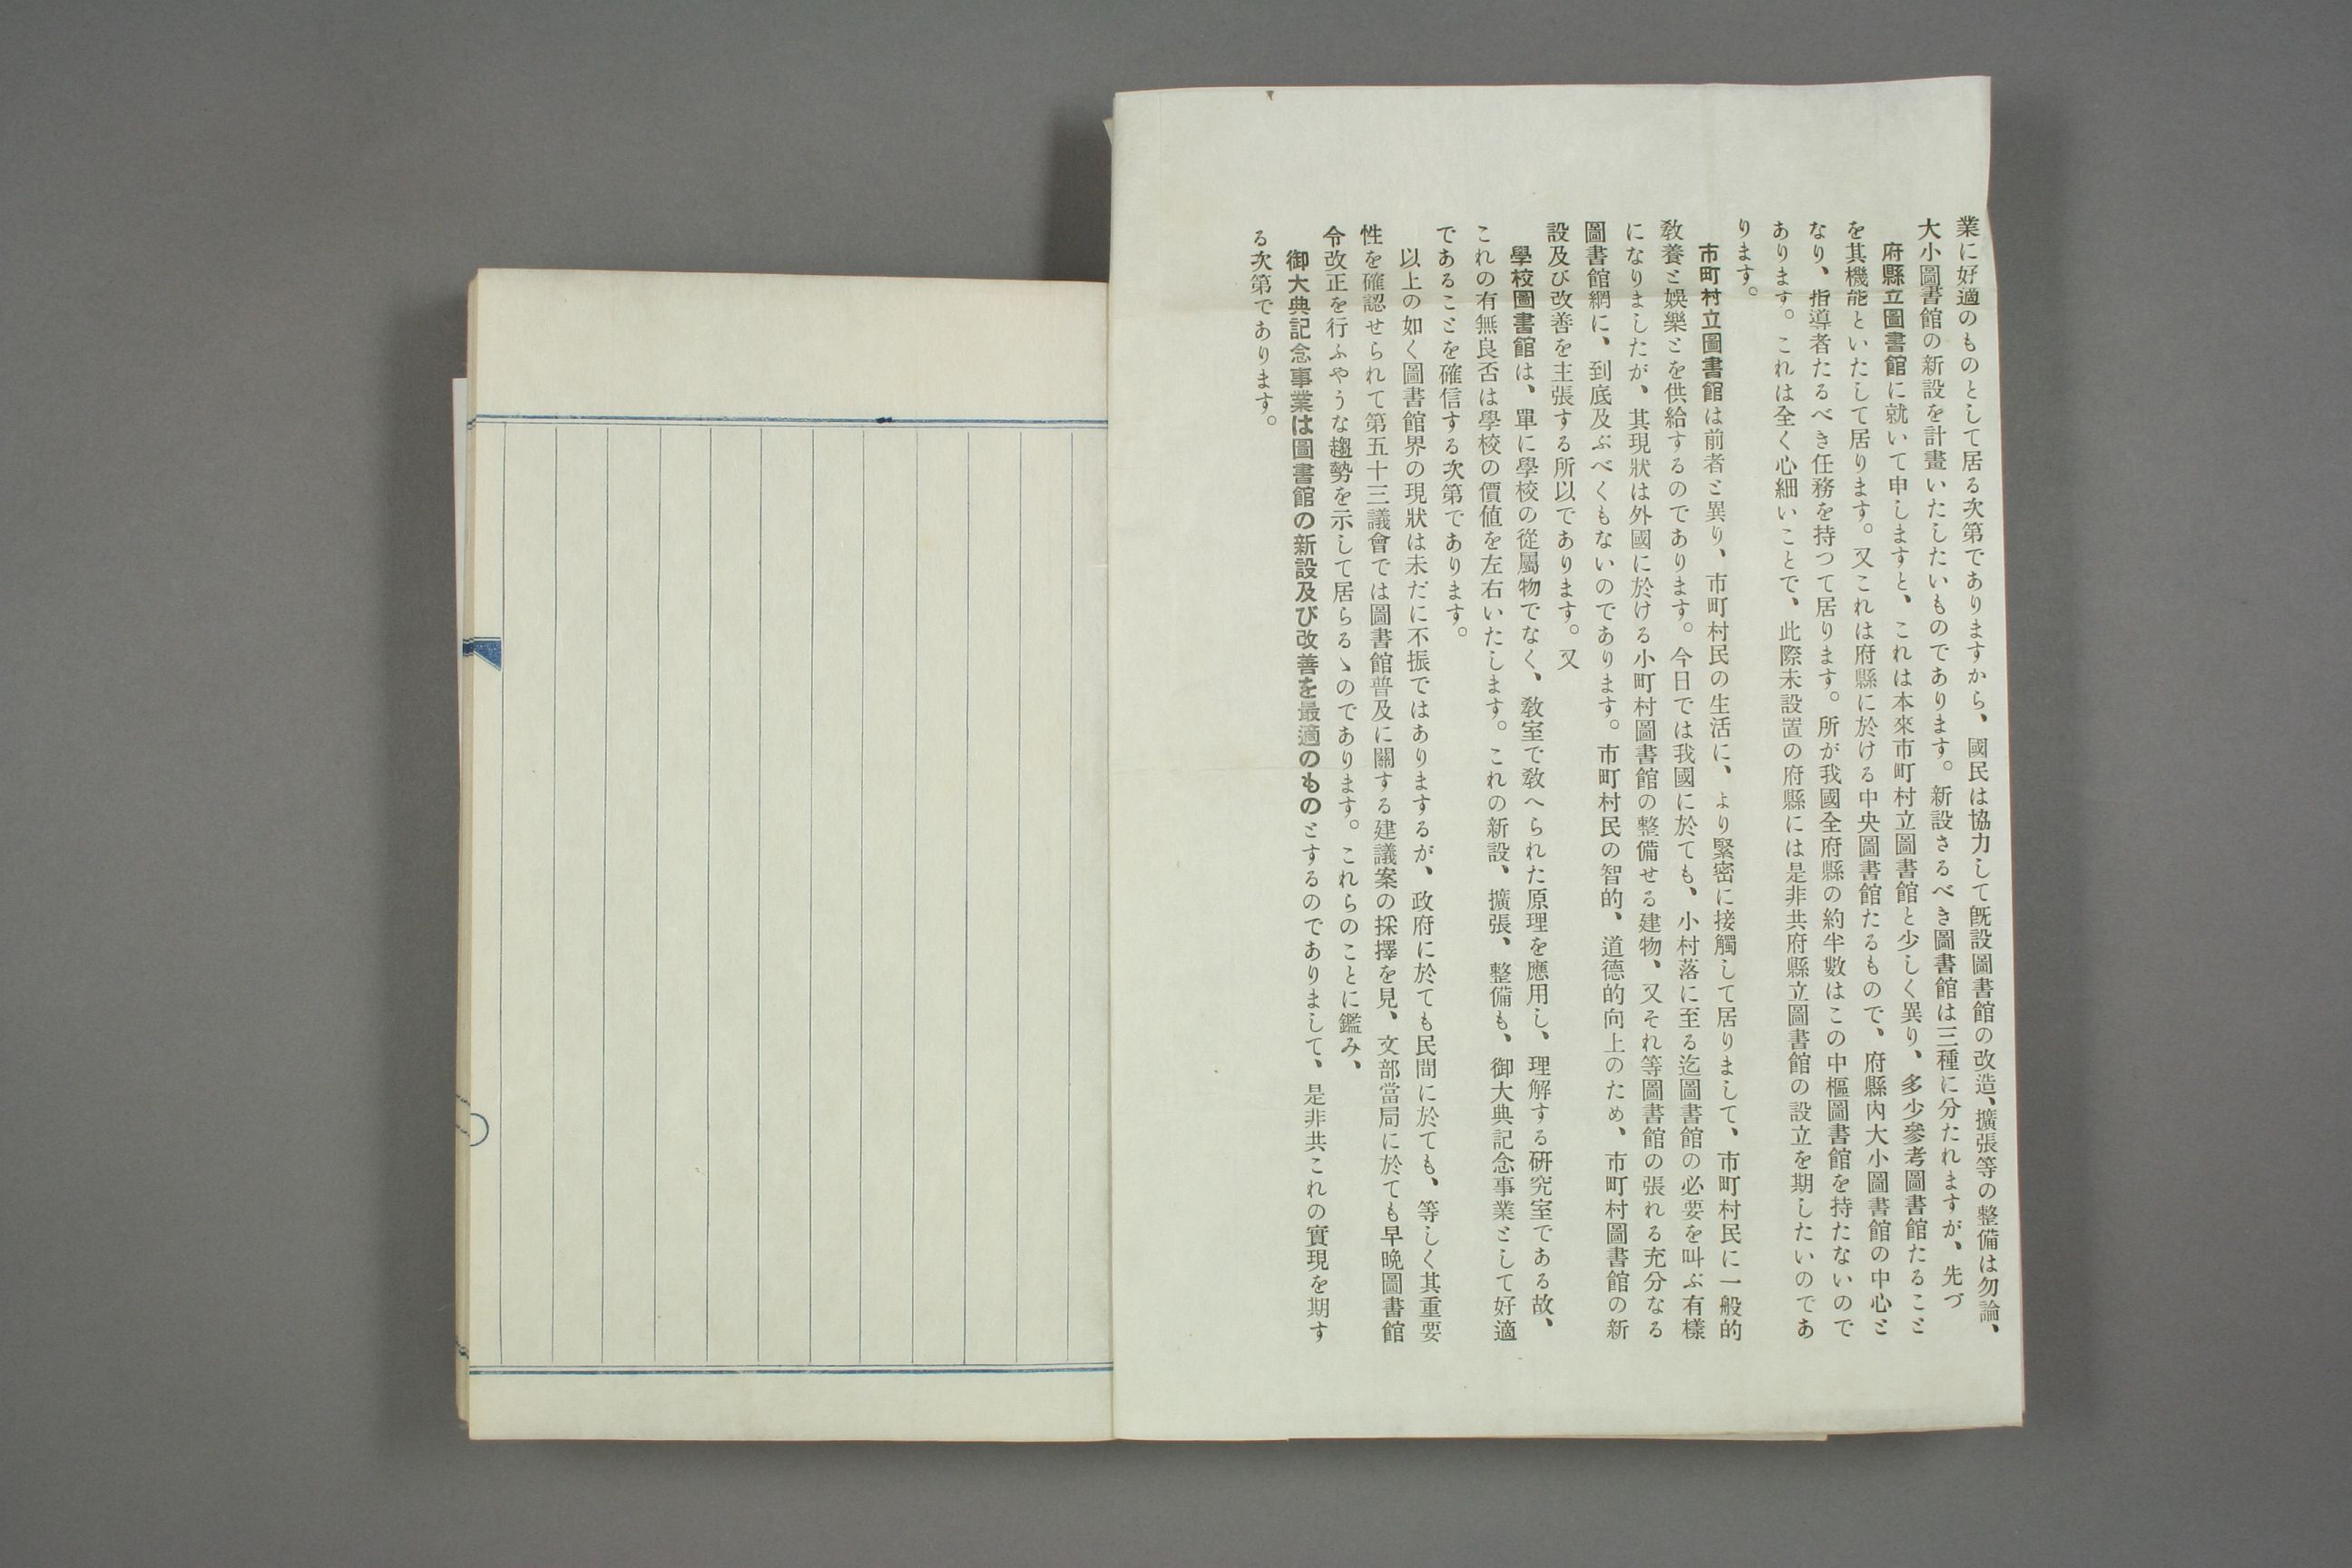 業に好適のものとして居る次第でありますから、國民は協力して既設圖書館の改造、擴張等の整備は勿論、
大小圖書館の新設を計畫いたしたいものであります。新設さるべき圖書館は三種に分たれますが、先づ
府縣立圖書館に就いて申しますと、これは本來市町村立圖書館と少しく異り、多少參考圖書館たること
を其機能といたして居ります。又これは府縣に於ける中央圖書館たるもので、府縣內大小圖書館の中心と
なり、指導者たるべき任務を持つて居ります。所が我國全府縣の約半數はこの中樞圖書館を持たないので
あります。これは全く心細いことで、此際未設置の府縣には是非共府縣立圖書館の設立を期したいのであ
ります。
市町村立圖書館は前者と異り、市町村民の生活に、より緊密に接觸して居りまして、市町村民に一般的
敎養と娛樂とを供給するのであります。今日では我國に於ても、小村落に至る迄圖書館の必要を叫ぶ有樣
になりましたが、其現狀は外國に於ける小町村圖書館の整備せる建物、又それ等圖書館の張れる充分なる
圖書館網に、到底及ぶべくもないのであります。市町村民の智的、道德的向上のため、市町村圖書館の新
設及び改善を主張する所以であります。又
學校圖書館は、單に學校の從屬物でなく、敎室で敎へられた原理を應用し、理解する硏究室である故、
これの有無良否は學校の價値を左右いたします。これの新設、擴張、整備も、御大典記念事業として好適
であることを確信する次第であります。
以上の如く圖書館界の現狀は未だに不振ではありまするが、政府に於ても民間に於ても、等しく其重要
性を確認せられて第五十三議會では圖書館普及に關する建議案の採擇を見、文部當局に於ても早晩圖書館
令改正を行ふやうな趨勢を示して居らるゝのであります。これらのことに鑑み、
御大典記念事業は圖書館の新設及び改善を最適のものとするのでありまして、是非共これの實現を期す
る次第であります。